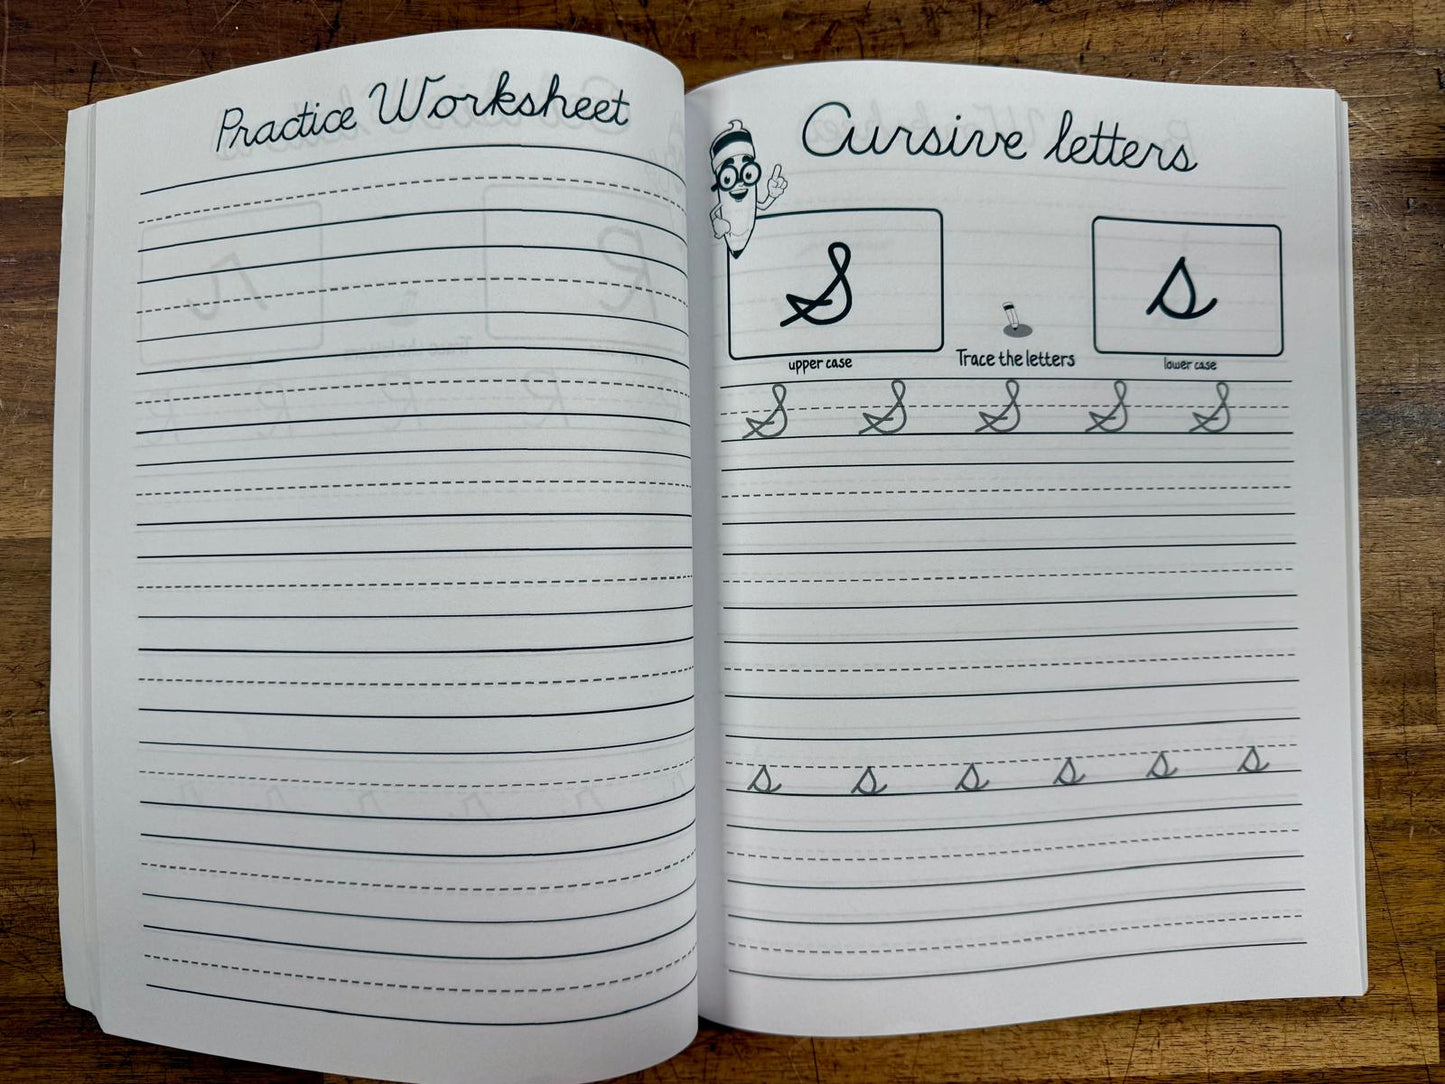 Practice Worksheet
Cursive letters
S
s
upper case
Trace the letters
lower case
S S S S S
s s s s s s